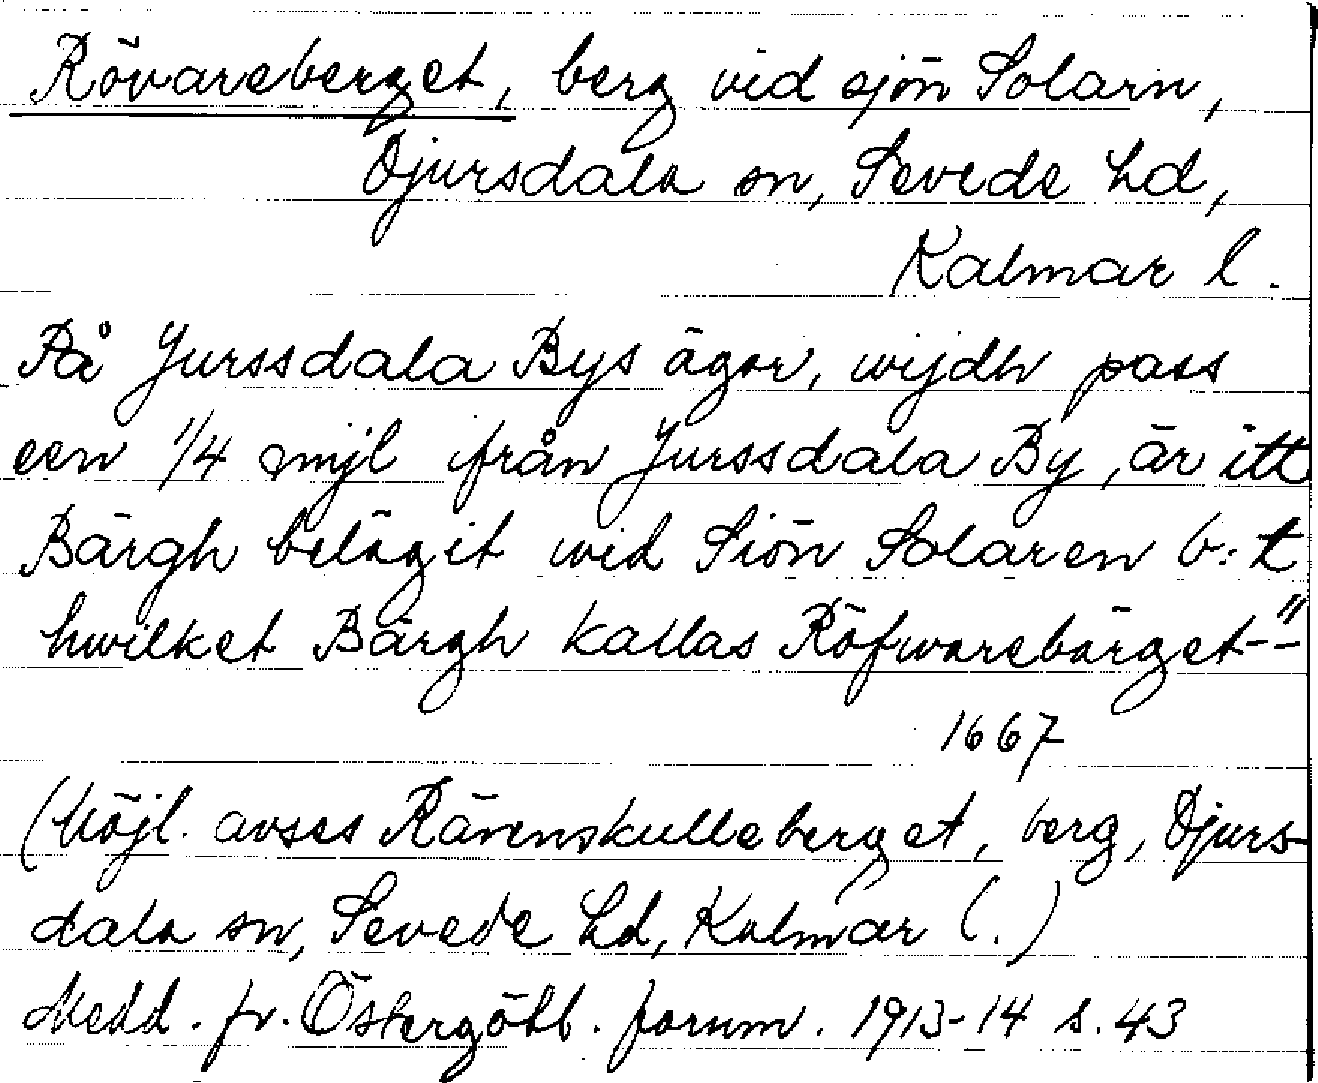 Rövareberget, berg vid sjön Solarn,
Djursdala sn, Sevede hd,
Kalmar l.
På Jurssdala Bys ägor, wijdh pass
een 1/4 mijl ifrån Jurssdala By, är itt
Bärgh belägit wid Siön Solaren b:t
hwilket Bärgh kallas Röfwarebärget--"
1667
(Möjl. avses Rävenskulleberget, berg, Djurs-
dala sn, Sevede hd, Kalmar l.)
Medd. fr. Östergötl. fornm. 1913-14 s. 43